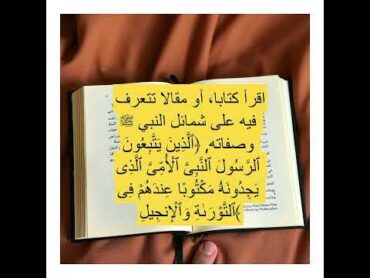 اقرأ كتابا، أو مقالا تتعرف
فيه على شمائل النبي ﷺ
وصفاته, ﴿ٱلَّذِينَ يَتَّبِعُونَ
ٱلرَّسُولَ ٱلنَّبِيَّ ٱلْأُمِّيَّ ٱلَّذِى
يَجِدُونَهُۥ مَكْتُوبًا عِندَهُمْ فِى
ٱلتَّوْرَىٰةِ وَٱلْإِنجِيلِ﴾